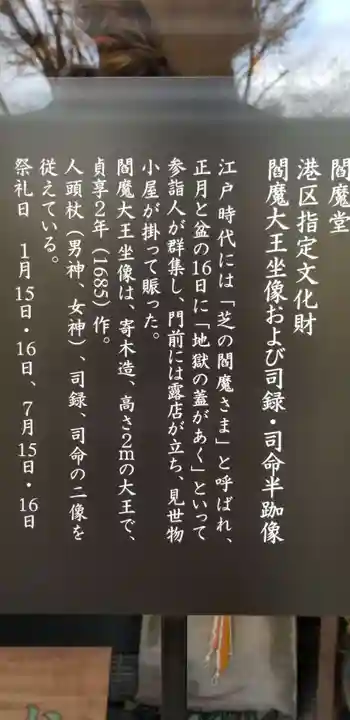 閻魔堂
港区指定文化財
閻魔大王坐像および司録・司命半跏像
江戸時代には「芝の閻魔さま」と呼ばれ、
正月と盆の16日に「地獄の蓋があく」といって
参詣人が群集し、門前には露店が立ち、見世物
小屋が掛って賑った。
閻魔大王坐像は、寄木造、高さ2mの大王で、
貞享2年（1685）作。
人頭杖（男神、女神）、司録、司命の二像を
従えている。
祭礼日 1月15日・16日、7月15日・16日